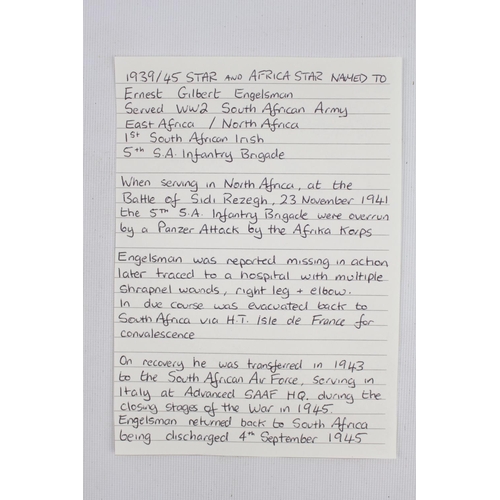 1939/45 STAR AND AFRICA STAR NAMED TO
Ernest Gilbert Engelsman
Served WW2 South African Army
East Africa / North Africa
1st South African Irish
5th S.A. Infantry Brigade
When serving in North Africa, at the
Battle of Sidi Rezegh, 23 November 1941
the 5th S.A. Infantry Brigade were overrun
by a Panzer Attack by the Afrika Korps
Engelsman was reported missing in action
later traced to a hospital with multiple
shrapnel wounds, right leg + elbow.
In due course was evacuated back to
South Africa via H.T. Isle de France for
convalescence
On recovery he was transferred in 1943
to the South African Air Force, serving in
Italy at Advanced SAAF HQ. during the
closing stages of the War in 1945.
Engelsman returned back to South Africa
being discharged 4th September 1945